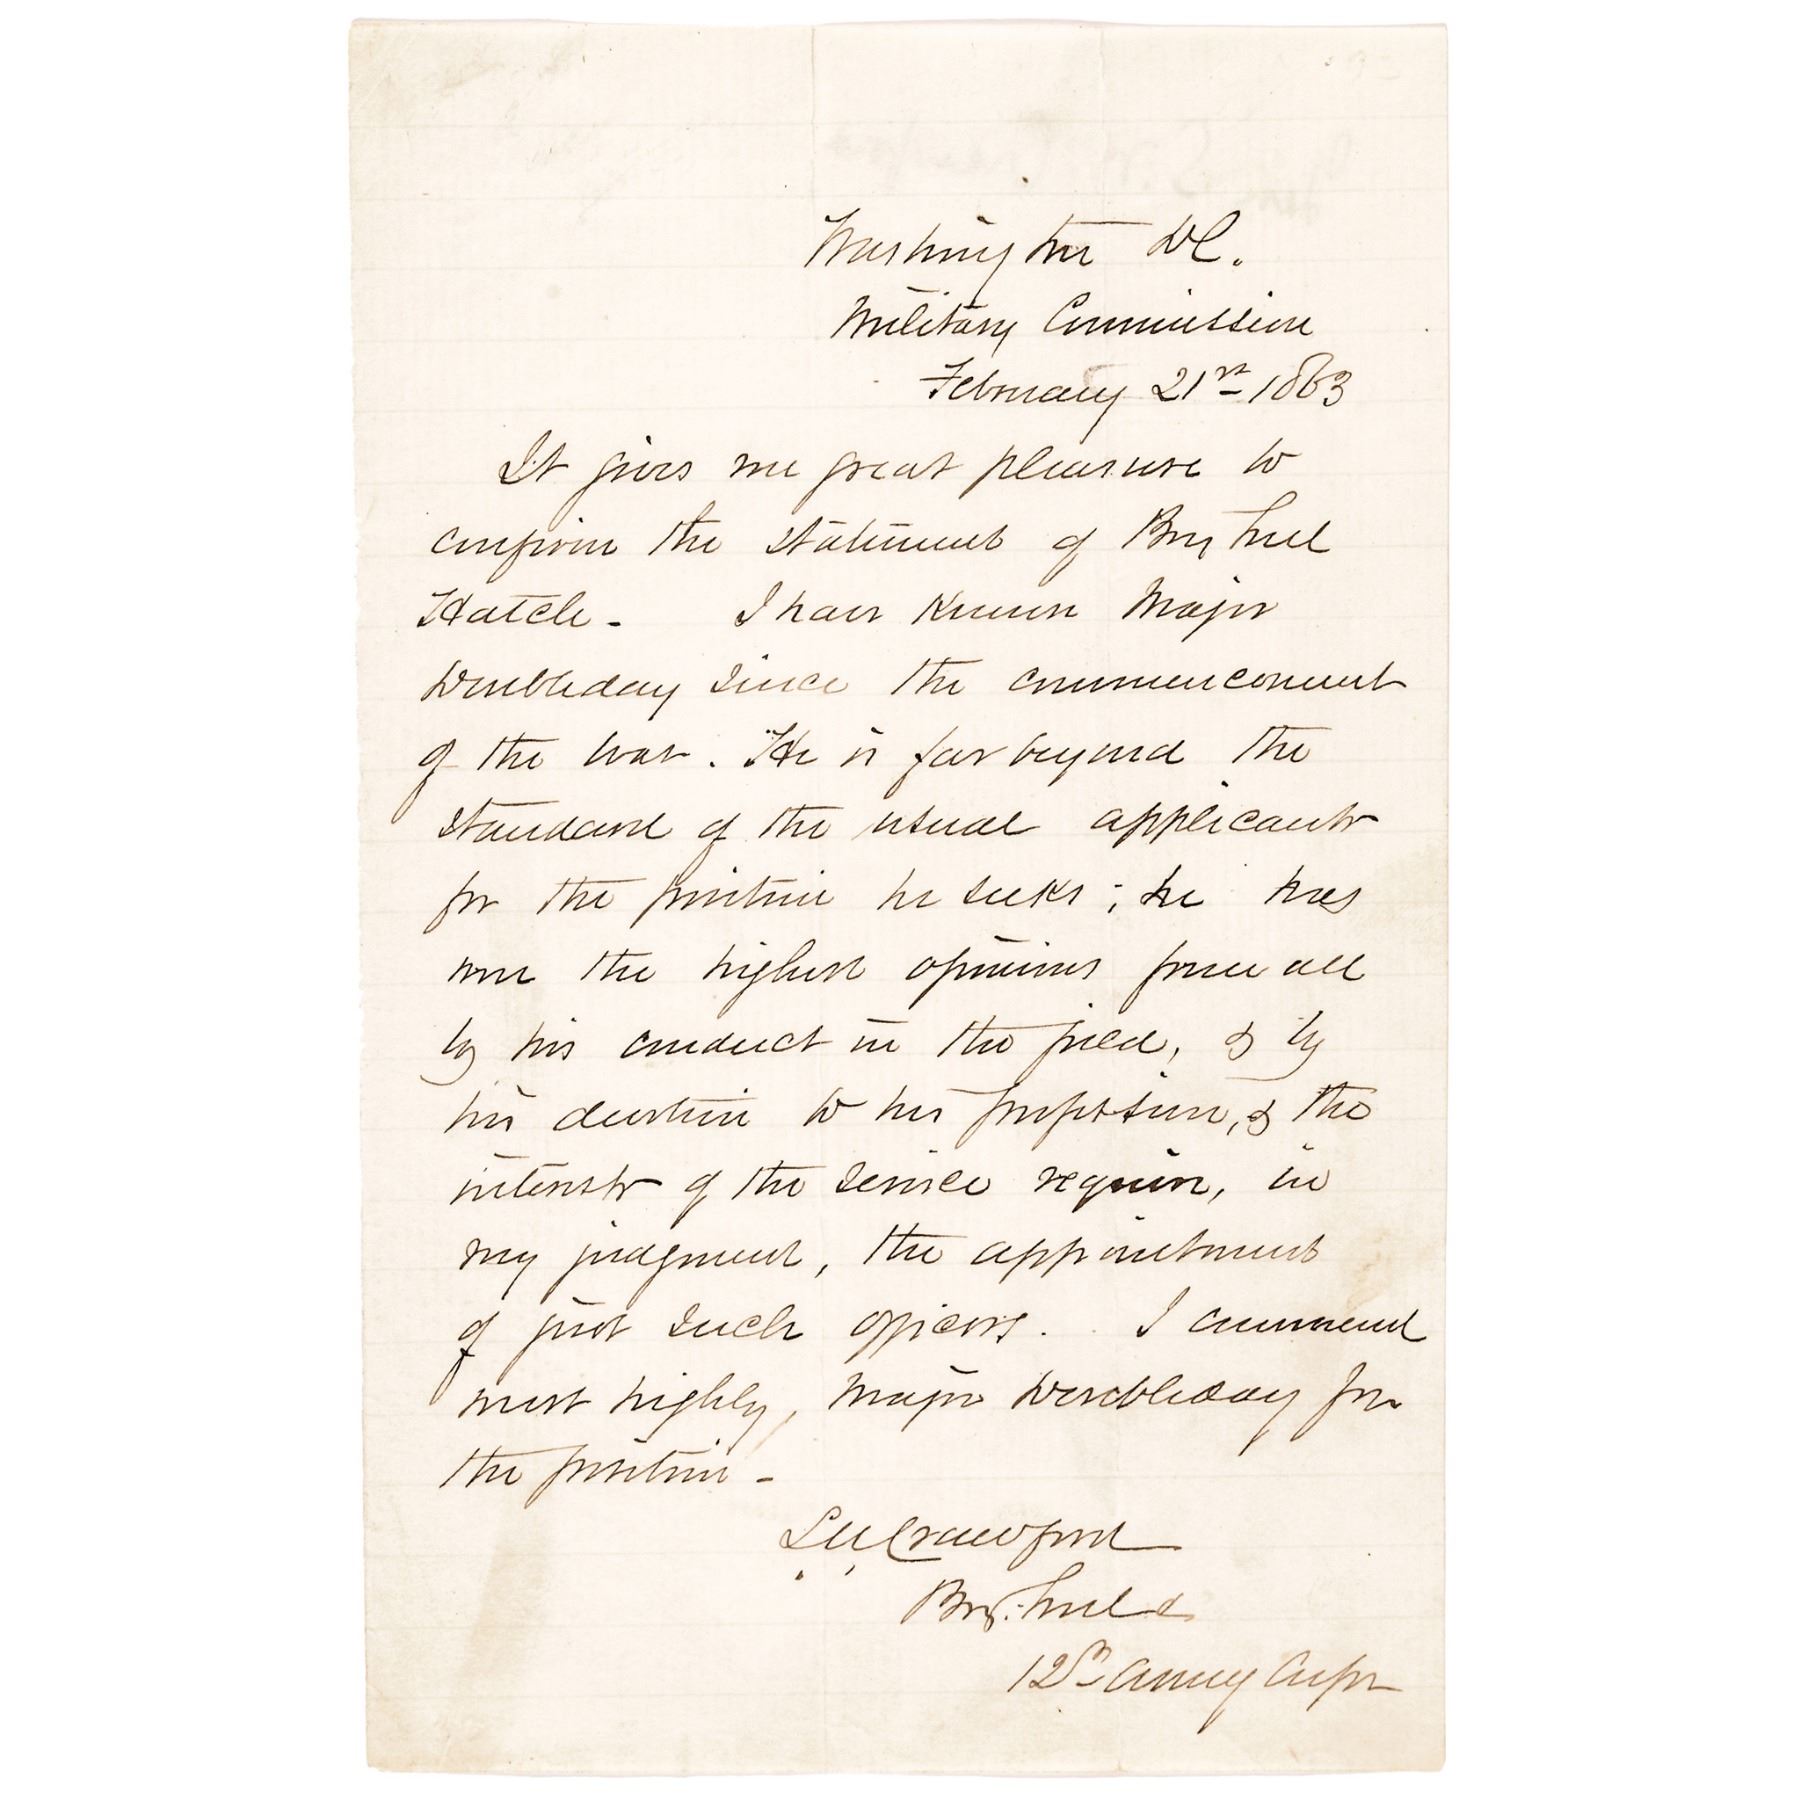 Washington DC.
Military Commission
February 21st 1863
It gives me great pleasure to
confirm the statement of Brig Genl
Hatch - I have known Major
Wimbleday since the commencement
of the war. He is far beyond the
standard of the usual applicants
for the position he seeks; he has
won the highest opinions from all
by his conduct in the field, & by
his devotion to his profession, & the
interests of the service require, in
my judgment, the appointment
of just such officers. I commend
most highly, Major Wimbleday for
the position -
S.W. Crawford
Brig. Genl
12th Army Corps